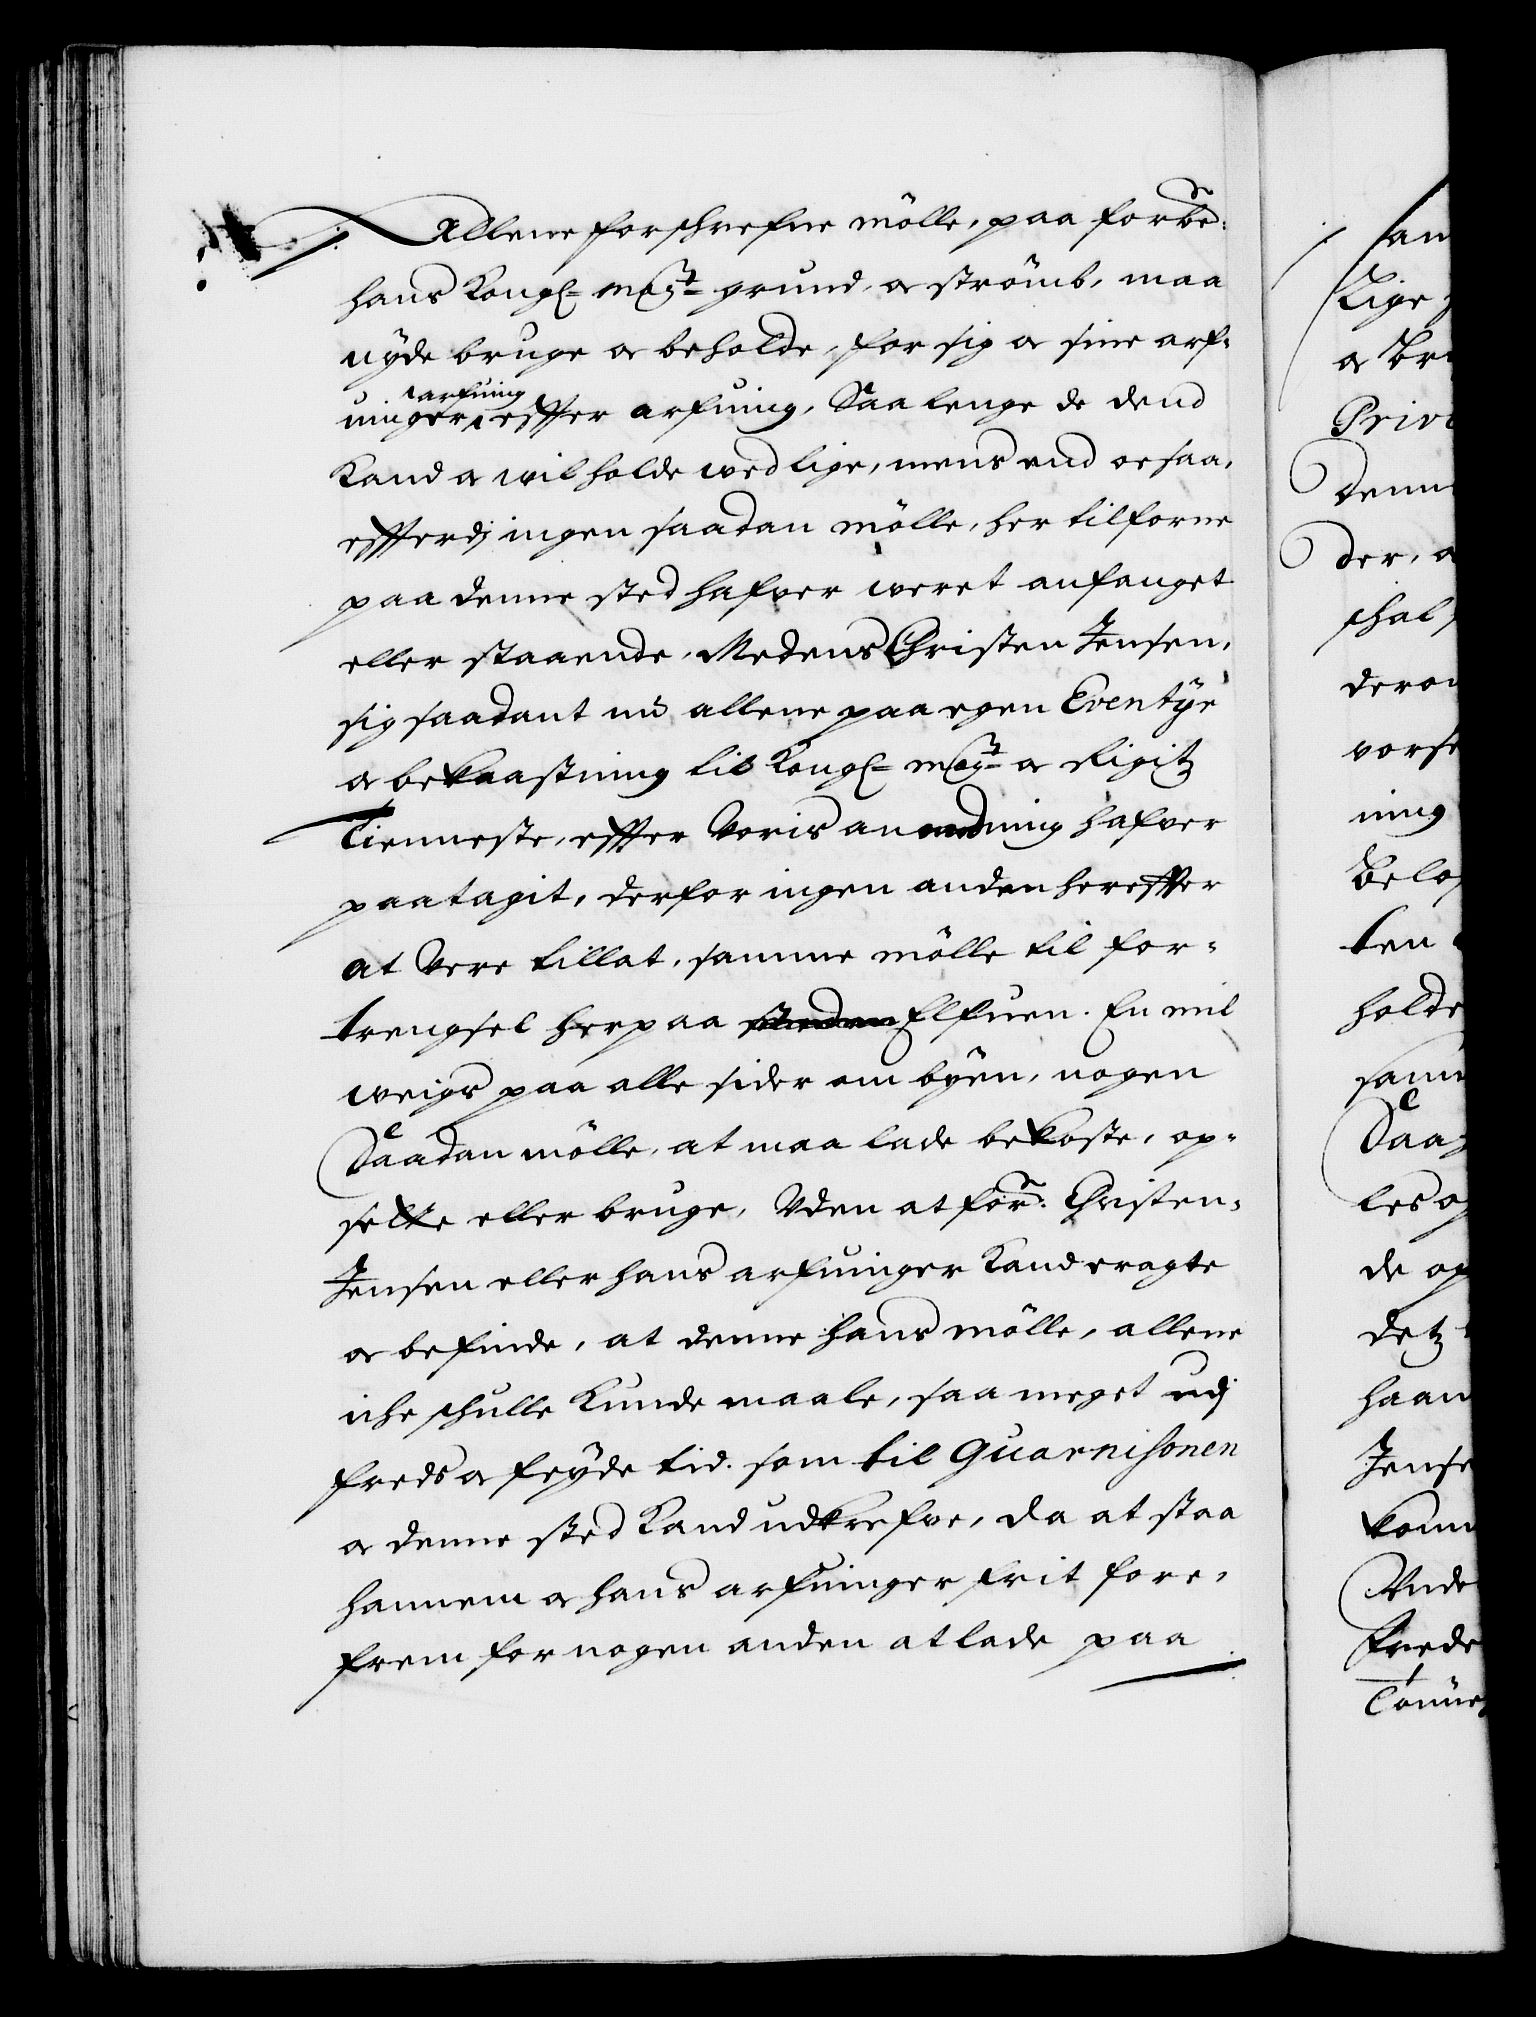 Allene forschrefne mölle, paa forbe:
hans Kongl= May:tt grund, oc strömb, maa
nÿde bruge oc beholde, for sig oc sine arf-
uinger, arfuing effter arfuing, Saa lenge de dend
Kand oc wil holde wed lige, mens end ocsaa,
effterdj ingen saadan mölle, her tilforne
paa denne sted hafver weret anfanget
eller staaende, Medens Christen Jensen,
sig saadant nu allene paa egen Eventÿr
oc bekaastning til Kongl= May:tt oc Rigitz
Tienneste, effter Voris anmodning hafver
paatagit, derfor ingen anden hereffter
at Vere tillat, samme mölle til for-
trengsel her paa Elfuen. En mil
weigs paa alle sider om bÿen, nogen
Saadan mölle, at maa lade bekoste, op-
sette eller bruge, Vden at for:ne Christen-
Jensen eller hans arfuinger Kand eragte
oc befinde, at denne hans mölle, allene
iche schulle Kunde maale, saa meget udj
freds oc feÿde tid. som til Guarnisonen
oc denne sted Kand udkrefve, da at staa
hannem oc hans arfuinger frit fore,
frem for nogen anden at lade paa
Lige
Privi
schal
vorse
ning
holde
Saa
de op
detz
haan
Jense
Vnde